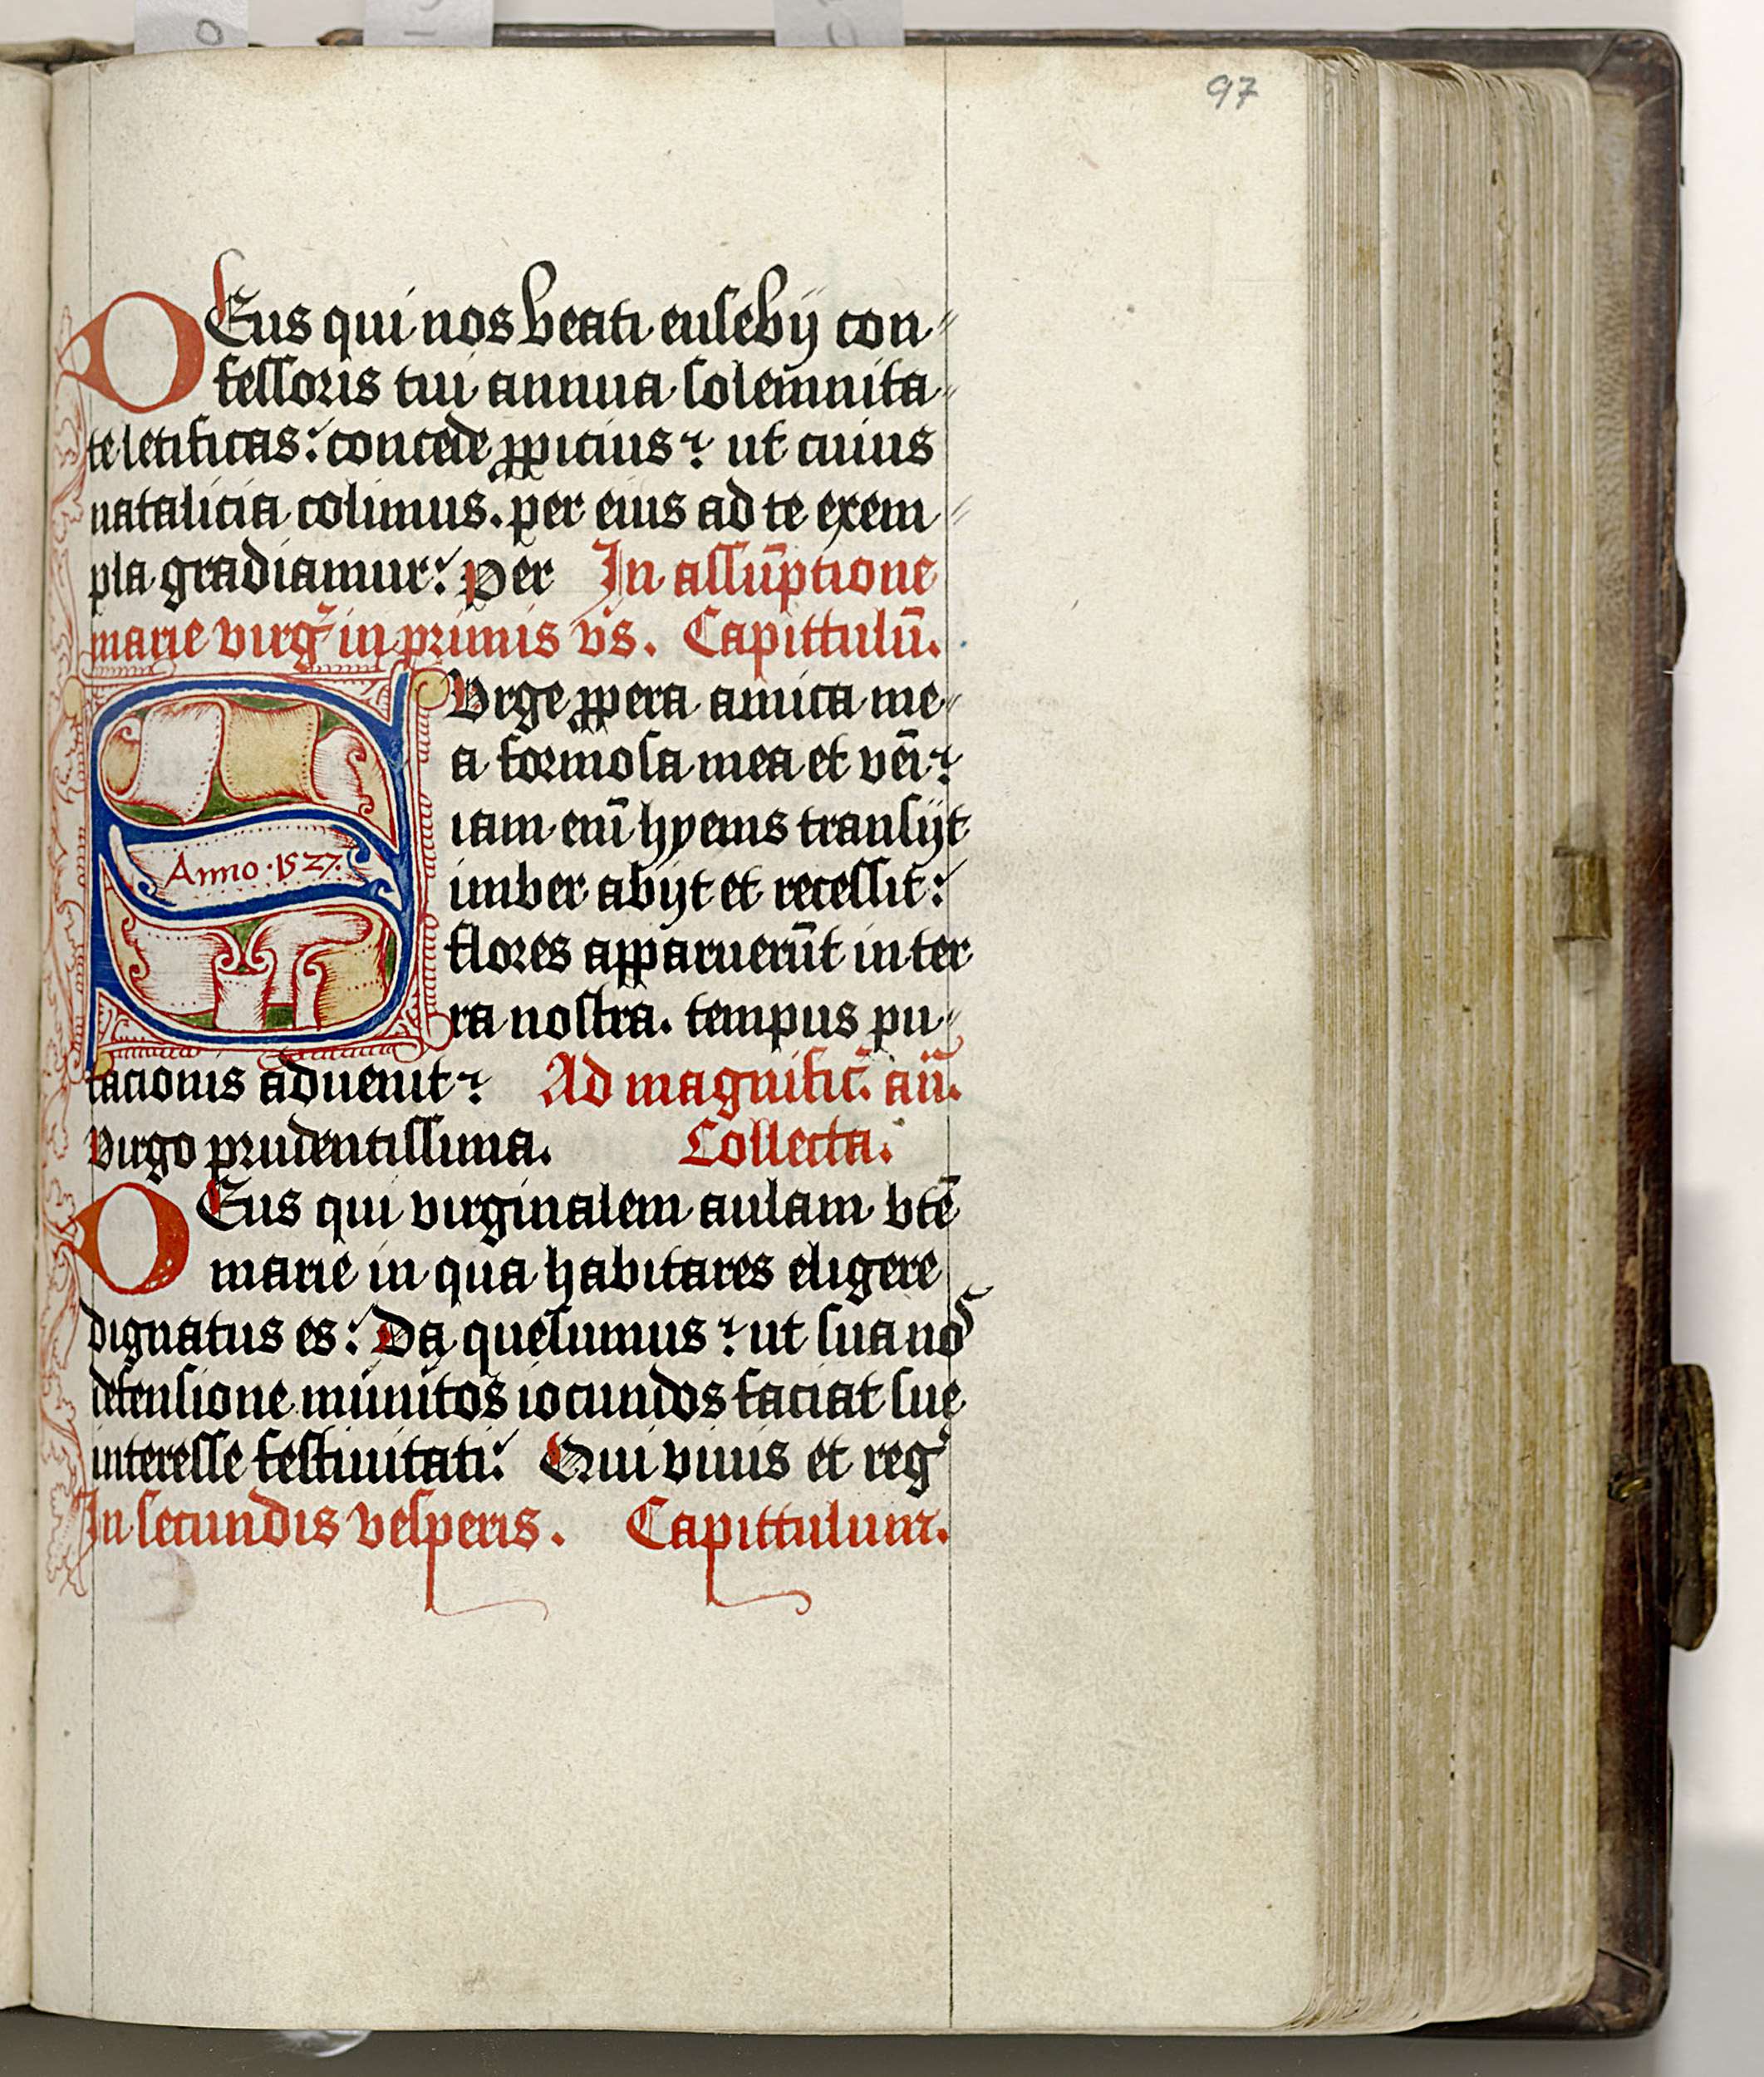 97
DEus qui nos beati eusebij con⸗
fessoris tui annua solem̄nita⸗
te letificas: concede ꝓpicius: ut cuius
natalicia colimus. per eius ad te exem⸗
pla gradiamur: Per In assūptione
marie virgͥ in primis vs̄. Capittulū.
SUrge ꝓpera amica me⸗
a formosa mea et vēi:
iam enī hyems transijt
imber abijt et recessit:
flores apparuerūt in ter
Anno · 1527.
ra nostra. tempus pu⸗
tacionis aduenit: Ad magnific̄. an̄.
Virgo prudentissima. Collecta.
DEus qui virginalem aulam bt̄e
marie in qua habitares eligere
dignatus es: Da quesumus: ut sua nos
defensione munitos iocundos faciat sue
interesse festiuitati: Qui viuis et reg
In secundis vesperis. Capittulum.